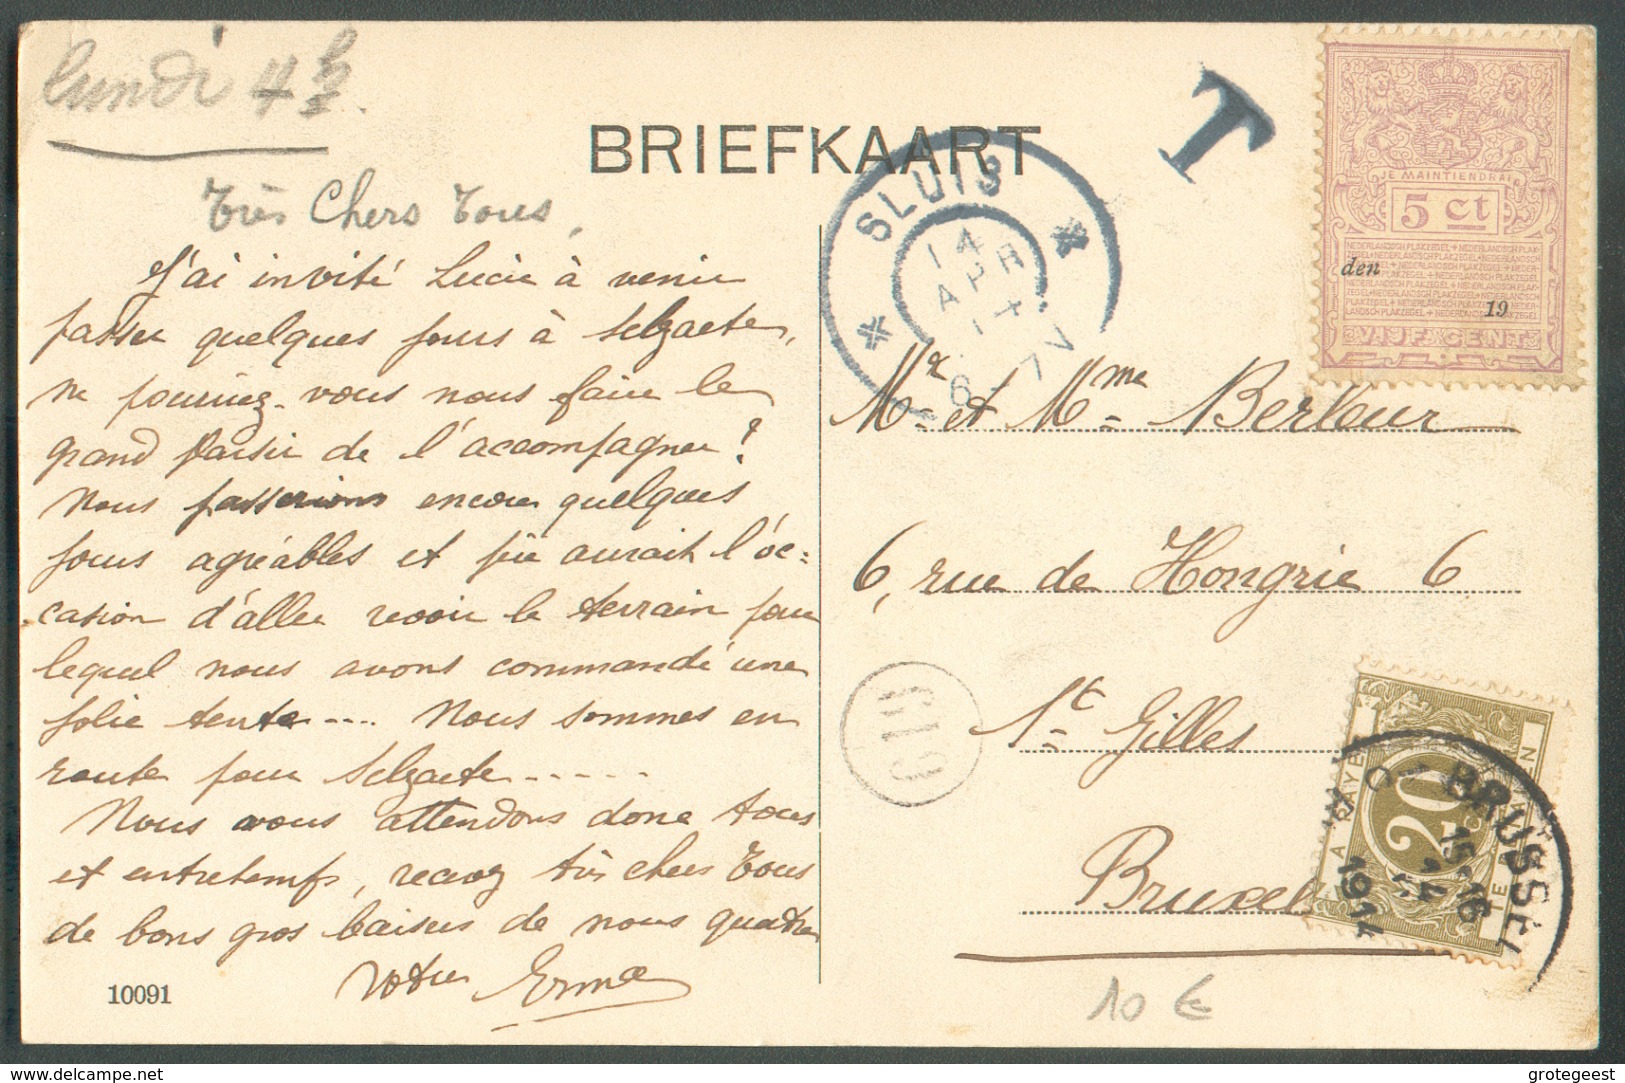 lundi 4 h
BRIEFKAART
T
SLUIS
14
APR
14
6-7V
JE MAINTIENDRAI
5 ct
den
19
VIJF CENT
Très Chers Tous,
J'ai invité Lucie à venir
passer quelques jours à Selzaete,
ne pourriez-vous nous faire le
grand plaisir de l'accompagner?
Nous passerions encore quelques
jours agréables et aurait l'oc=
casion d'aller revoir le terrain pour
lequel nous avons commandé une
jolie tente .... Nous sommes en
route pour Selzaete .....
Nous vous attendons donc tous
et entretemps, recevez très chers Tous
de bons gros baisers de nous quatre
Votre Erma
10091
Mr et Mme Berleur
6, rue de Hongrie 6
St Gilles
Bruxel
619
A PAYER
20
TE BETALEN
BRUSSEL
15-16
14
1914
10 €
delcampe.net
grotegeest